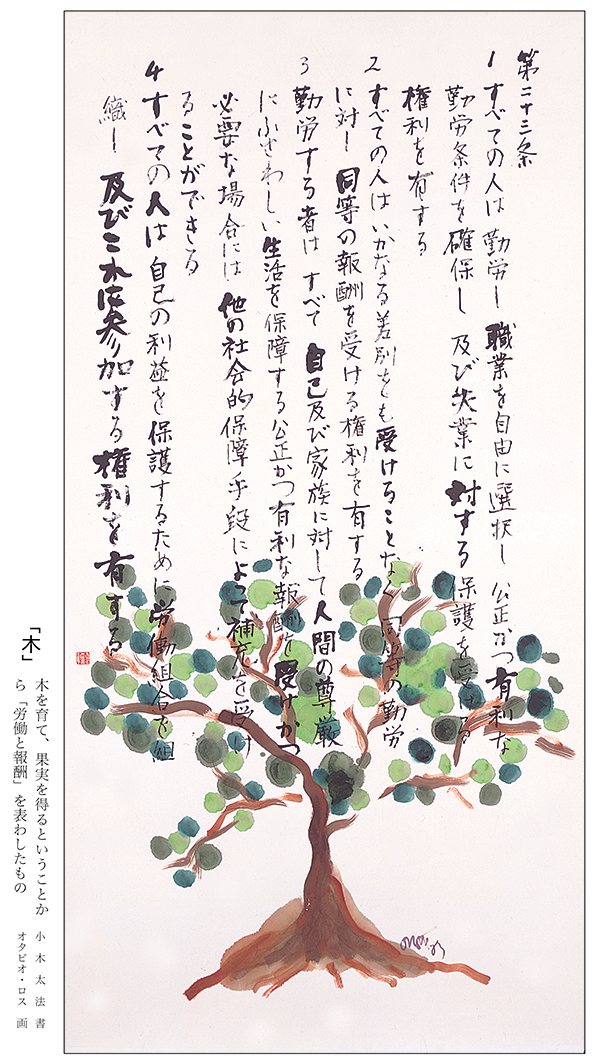 第二十三条
1 すべての人は 勤労し 職業を自由に選択し 公正かつ有利な
勤労条件を確保し 及び失業に対する保護を受ける
権利を有する
2 すべての人は いかなる差別をも受けることなく 同等の勤労
に対し 同等の報酬を受ける権利を有する
3 勤労する者は すべて 自己及び家族に対して人間の尊厳
にふさわしい 生活を保障する公正かつ有利な報酬を受けかつ
必要な場合には 他の社会的保障手段によって補充を受け
ることができる
4 すべての人は 自己の利益を保護するために労働組合を組
織し 及びこれに参加する権利を有する
「木」
木を育て、果実を得るということか
ら「労働と報酬」を表わしたもの
小木太法 書
オタビオ・ロス 画